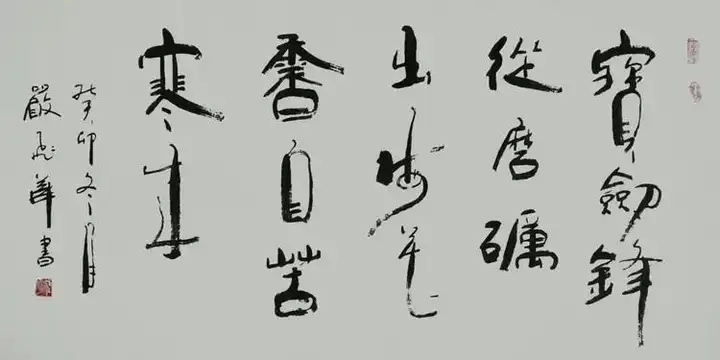 寶劍鋒
從磨礪
出梅花
香自苦
寒來
癸卯冬月
嚴飛華書